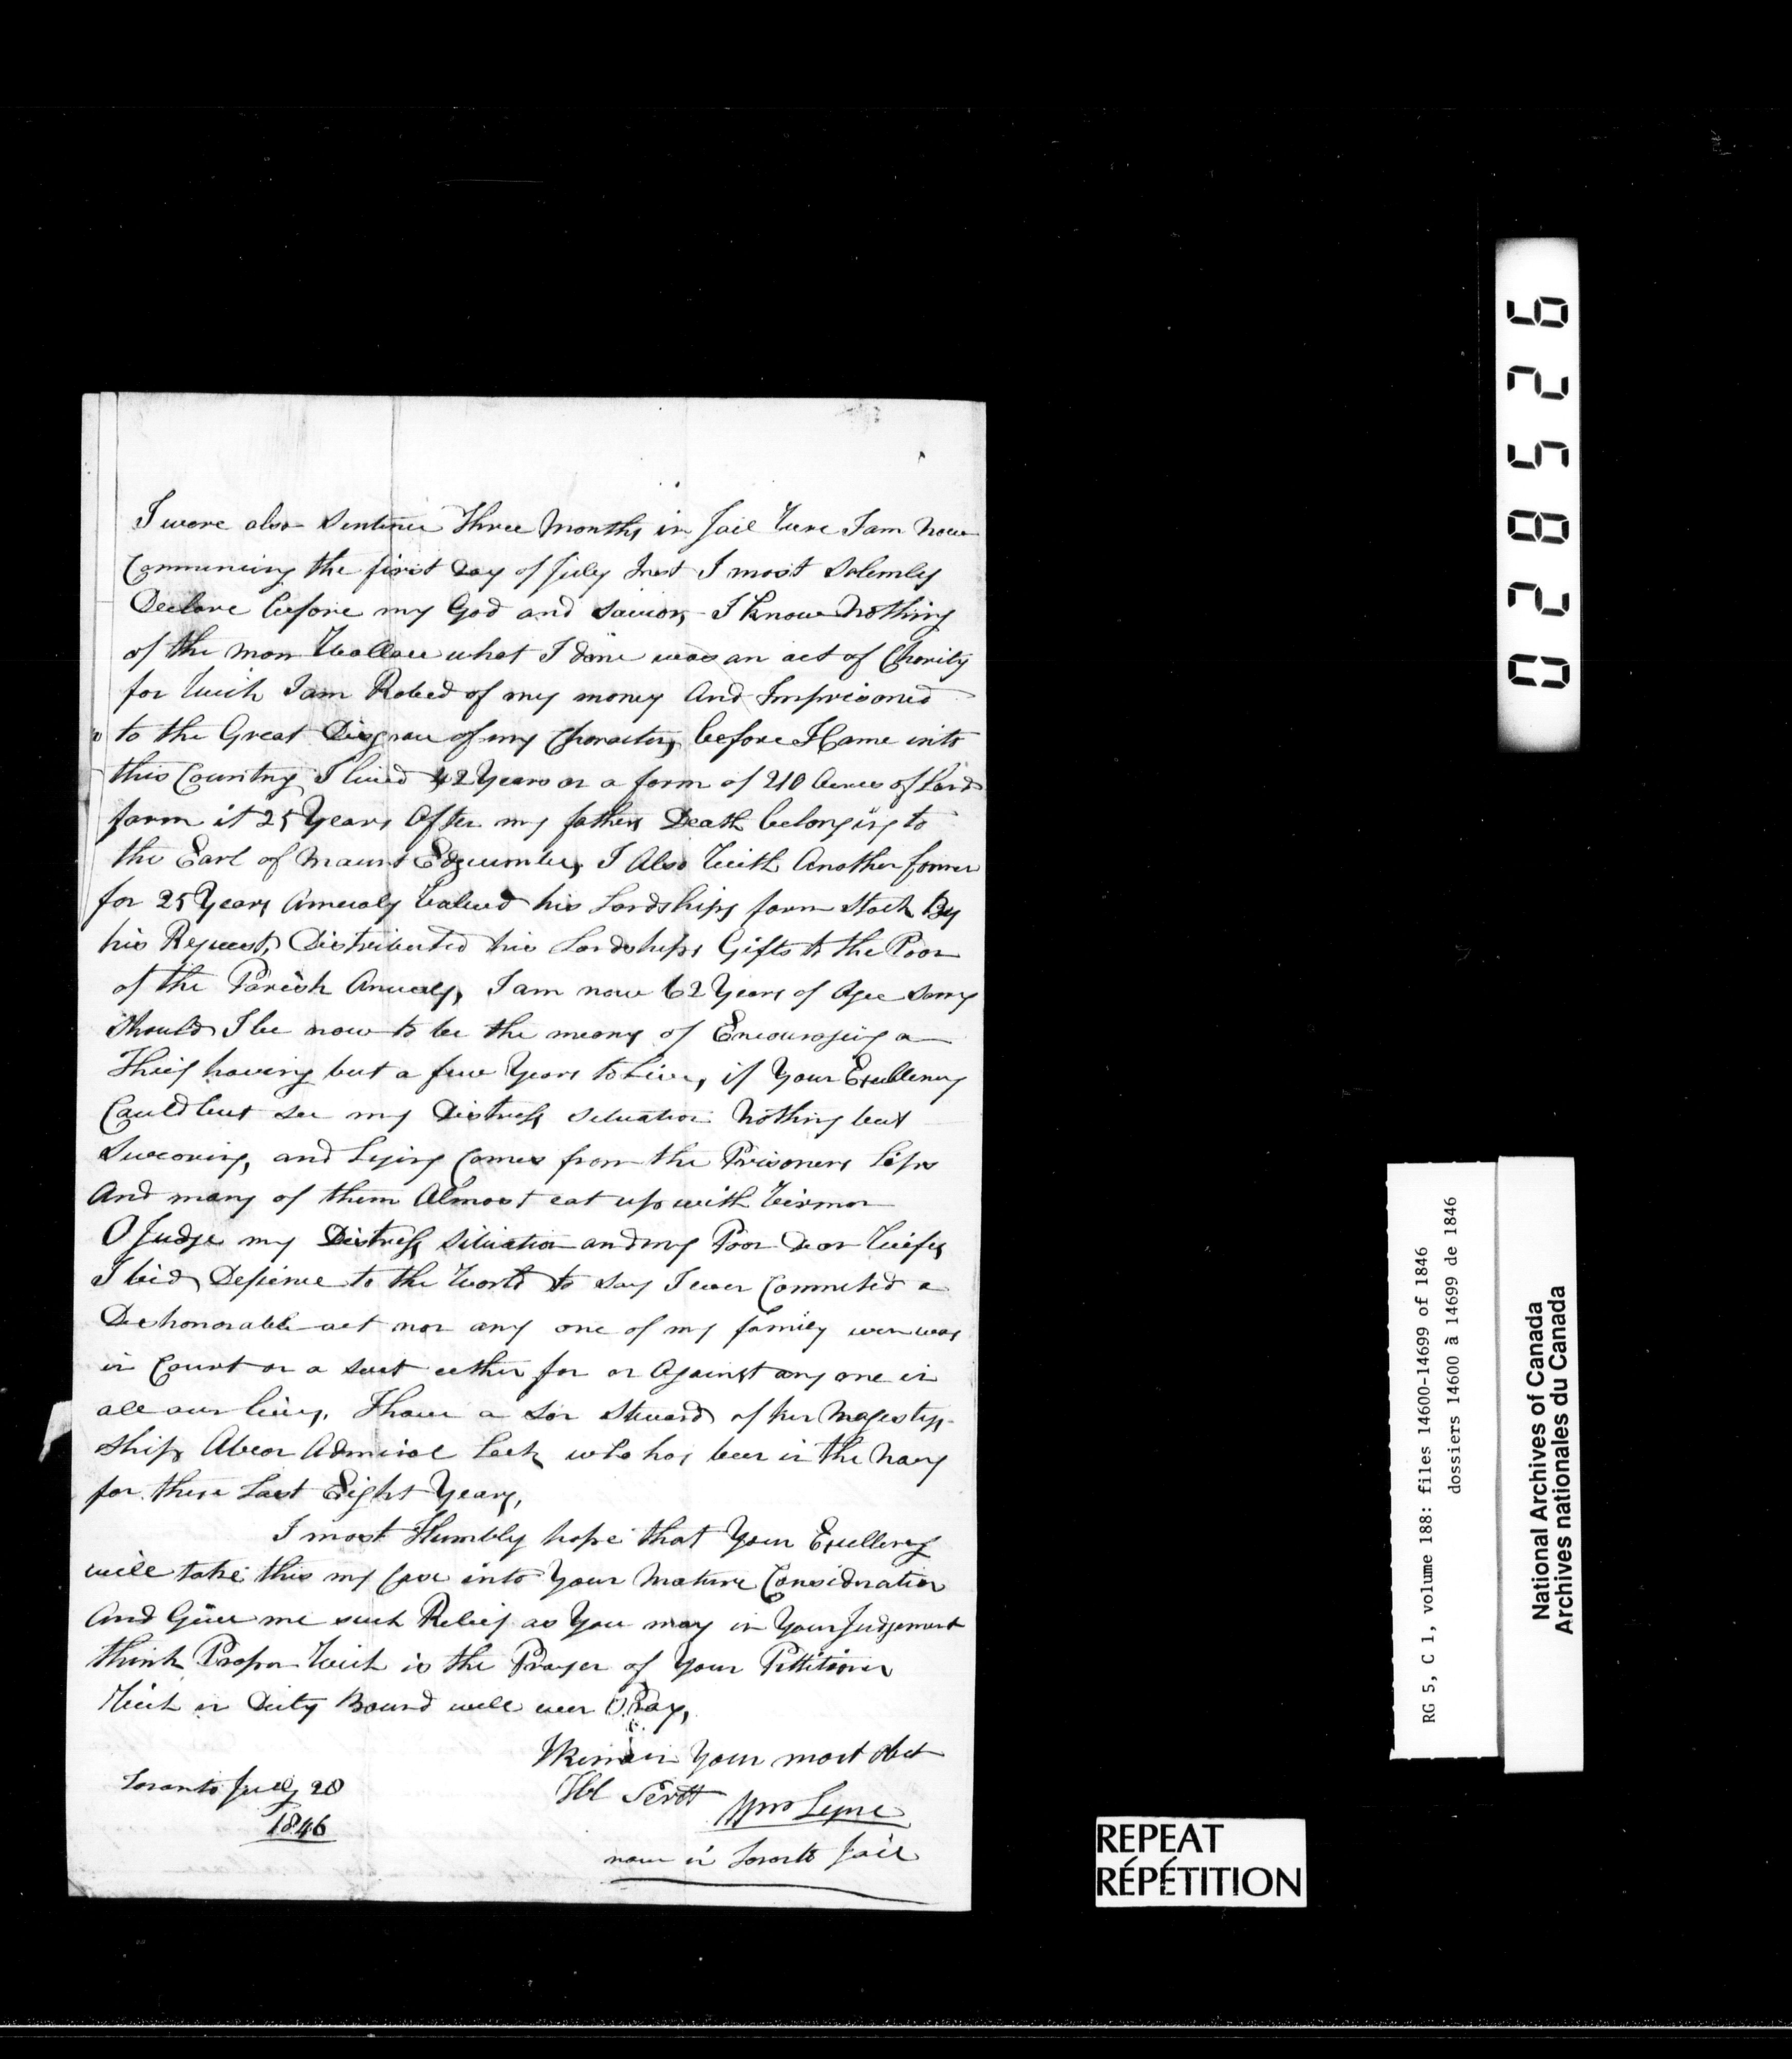 I were also Sentence Three Months in Jail Were I am Now
Commencing the first Day of July Inst I most Solemley
Declare before my God and Savior, I know Nothing
of the man Wallace what I done was an act of Charity
for Wich I am Robed of my money And Imprisoned
to the Great Disgrace of my Character, before I Came into
this Country I lived 42 Years on a farm of 210 Acres of Land
farm it 25 Years After my fathers Death belonging to
the Earl of Mount Edgcumbe, I Also With Another farmer
for 25 Years Annualy Valued his Lordships farm Stock By
his Request, Distributed his Lordships Gifts to the Poor
of the Parish Anualy, I am now 62 Years of Age Sorry
Should I be now to be the means of Encouraging a
Thief having but a few Years to Live, if Your Excellency
Could but see my Distress situation Nothing but
Swearing, and Lying Comes from the Prisoners Lips
And many of them Almost eat up with Virmon
O Judge my Distress Situation and my Poor Dear Wifes
I bid Defience to the World to Say I ever Commited a
Dishonorable act nor any one of my family ever was
in Court or a suit either for or Against any one in
all our lives, I have a Son Steward of her Magestys
Ship Admiral who has been in the Navy
for these Last Eight Years,
I most Humbly hope that Your Excellency
will take this my Case into Your Mature Consideration
And Give me such Relief as You may in Your Judgement
think Proper Wich is the Prayer of Your Pettitioner
Wich in Duty Bound will ever Pray,
I Remain Your most Obet
Hbl Servt Wm Lyne
Toronto July 28
1846
now in Toronto Jail
028526
RG 5, C 1, volume 188: files 14600-14699 of 1846
dossiers 14600 à 14699 de 1846
National Archives of Canada
Archives nationales du Canada
REPEAT
RÉPÉTITION